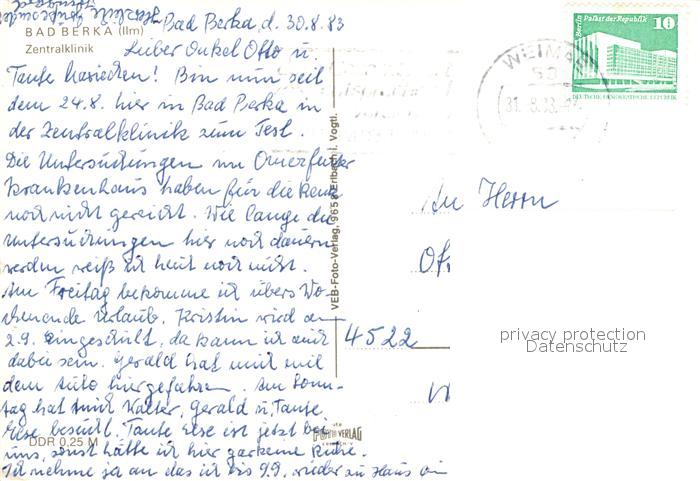 Herzliche Grüße
Bad Berka, d. 30.8.83
BAD BERKA (Ilm)
Zentralklinik
Lieber Onkel Otto u.
Tante Mariechen! Bin nun seit
dem 24.8. hier in Bad Berka in
der Zentralklinik zum Test.
Die Untersuchungen im
Krankenhaus haben für die Rente
noch nicht gereicht. Wie lange die
Untersuchungen hier noch dauern
werden weiß ich heut noch nicht.
Am Freitag bekomme ich übers Wo-
chenende Urlaub. Kristin wird am
2.9. eingeschult, da kann ich auch
dabei sein. Gerald hat mich mit
dem Auto hergefahren. Am Sonn-
tag hat mich Walter, Gerald u. Tante
Else besucht. Tante Else ist jetzt bei
uns, sonst hätte ich hier gar keine Ruhe.
Ich nehme ja an das ich bis 9.9. wieder zu Haus bin
DDR 0,25 M
VEB-Foto-Verlag, 9658 Erlbach i. Vogtl.
FOTO VERLAG
WEIMAR
53
31.8.83
Berlin Palast der Republik 10
DEUTSCHE DEMOKRATISCHE REPUBLIK
An Herrn
4522
privacy protection
Datenschutz